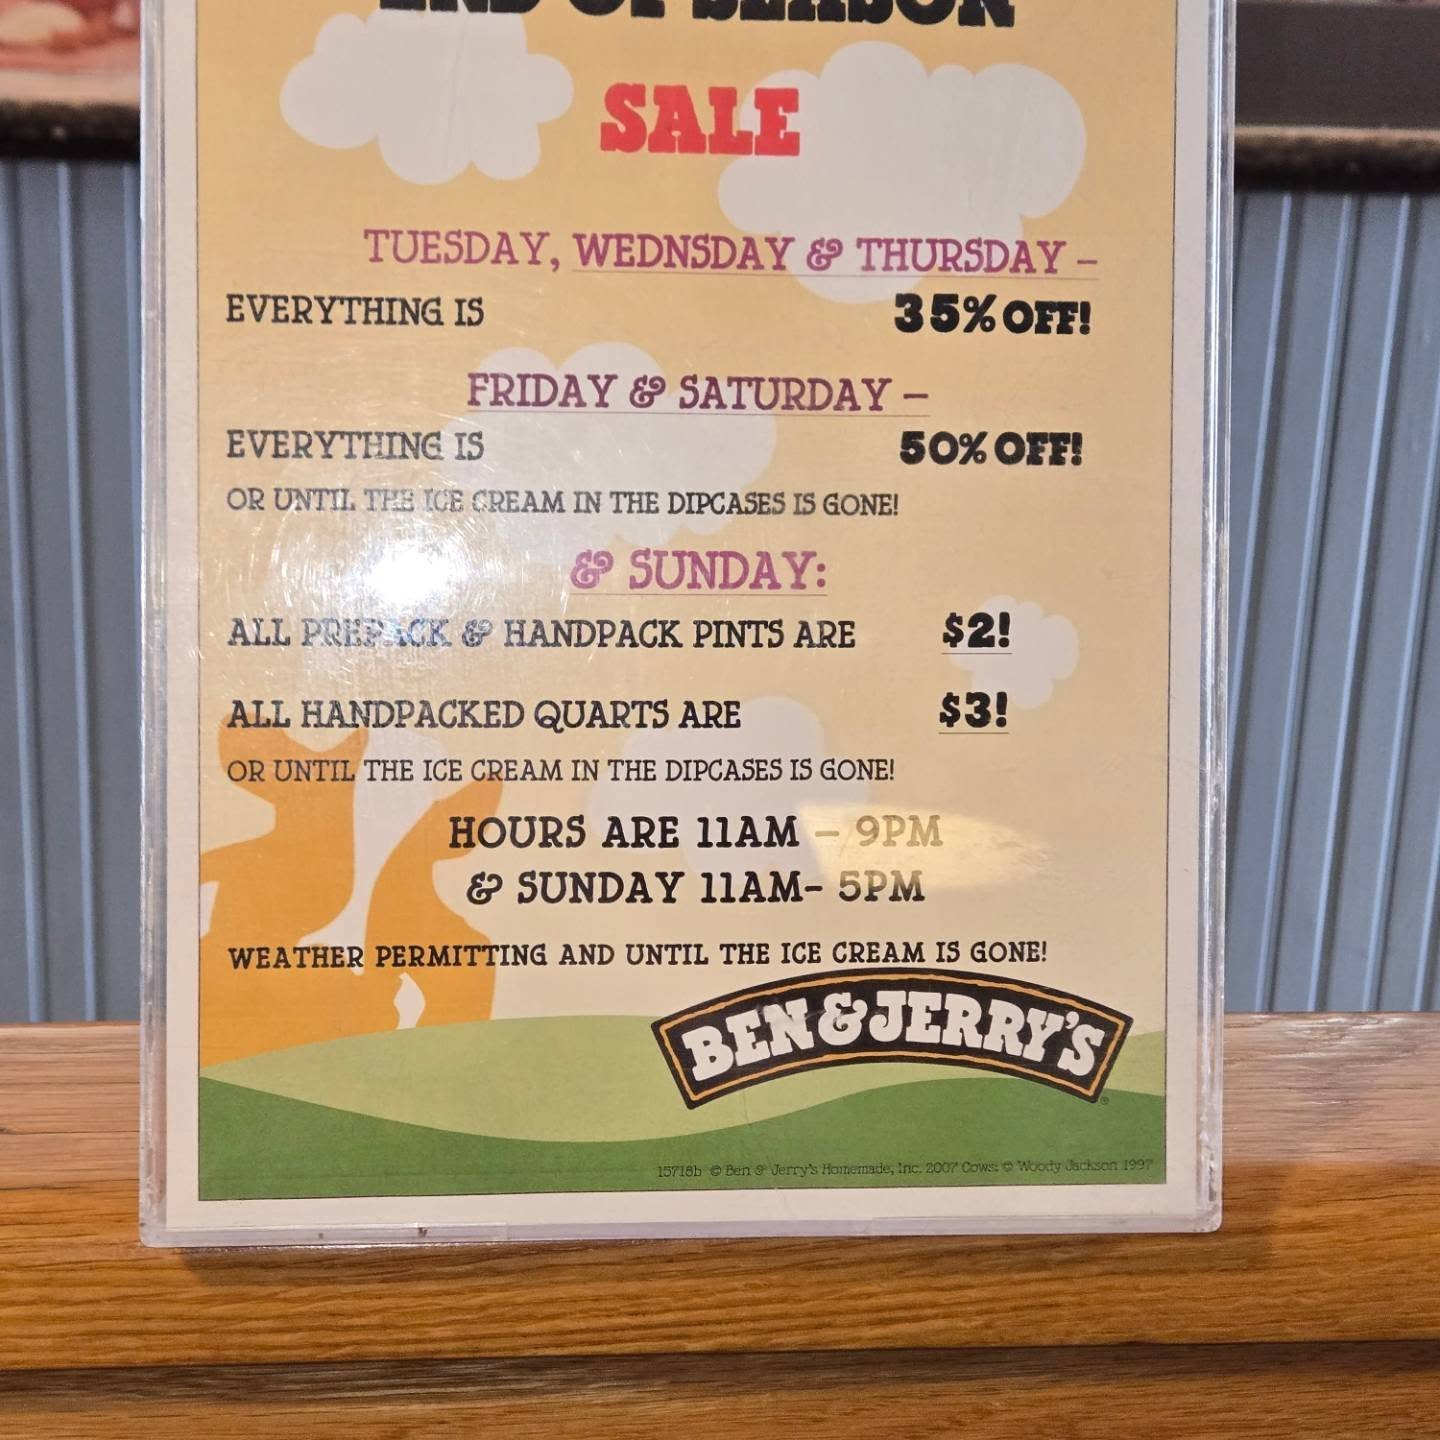 END OF SEASON
SALE
TUESDAY, WEDNSDAY & THURSDAY –
EVERYTHING IS 35% OFF!
FRIDAY & SATURDAY –
EVERYTHING IS 50% OFF!
OR UNTIL THE ICE CREAM IN THE DIPCASES IS GONE!
& SUNDAY:
ALL PREPACK & HANDPACK PINTS ARE $2!
ALL HANDPACKED QUARTS ARE $3!
OR UNTIL THE ICE CREAM IN THE DIPCASES IS GONE!
HOURS ARE 11AM – 9PM
& SUNDAY 11AM- 5PM
WEATHER PERMITTING AND UNTIL THE ICE CREAM IS GONE!
BEN & JERRY'S®
15718b © Ben & Jerry's Homemade, Inc. 2007 Cows: © Woody Jackson 1997